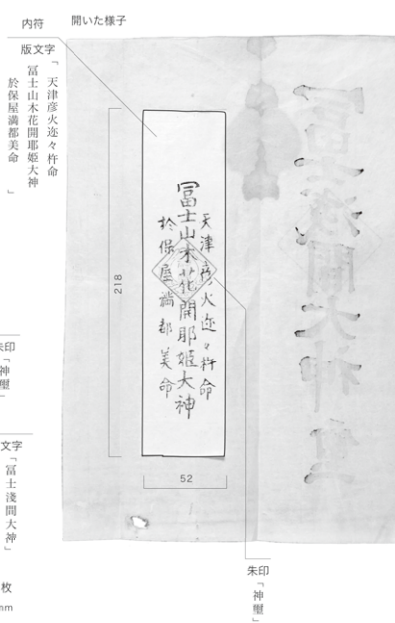 内符
開いた様子
版文字
「天津彦火迩々杵命
冨士山木花開耶姫大神
於保屋満都美命」
天津彦火迩々杵命
冨士山木花開耶姫大神
於保屋満都美命
冨士淺間大神
218
52
朱印
「神璽」
文字
「冨士淺間大神」
枚
mm
朱印
「神璽」